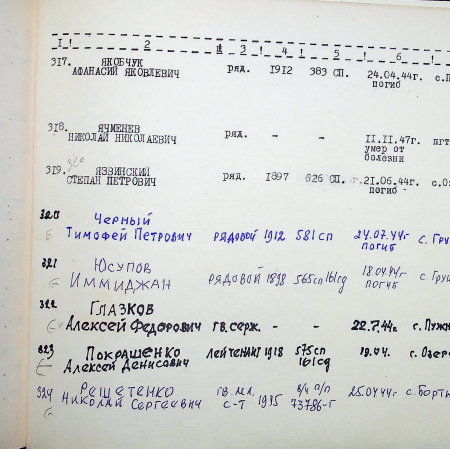 1 ! 2 ! 3 ! 4 ! 5 ! 6 !
317. ЯКОБЧУК
АФАНАСИЙ ЯКОВЛЕВИЧ ряд. 1912 383 СП. 24.04.44г. с.П
погиб
318. ЯЧМЕНЕВ
НИКОЛАЙ НИКОЛАЕВИЧ ряд. - - II.II.47г. пгт
умер от
болезни
319. ЯЗВИНСКИЙ
СТЕПАН ПЕТРОВИЧ ряд. 1897 626 СП. 21.06.44г. с.Оз
погиб -
320 Черный
Тимофей Петрович рядовой 1912 581 сп 24.07.44г. с. Гру
погиб
321 Юсупов
Иммиджан рядовой 1898 565сп 161сд 18.04.44г. с. Груш
погиб
322 Глазков
Алексей Федорович гв.серж. - - 22.7.44г. с. Пужн
323 Покрашенко
Алексей Денисович лейтенант 1918 575сп 19.04. с. Озер
161сд
324 Решетенко
Николай Сергеевич гв. мл. в/ч п/п 25.04.44г с. Борты
с-т 73786-г